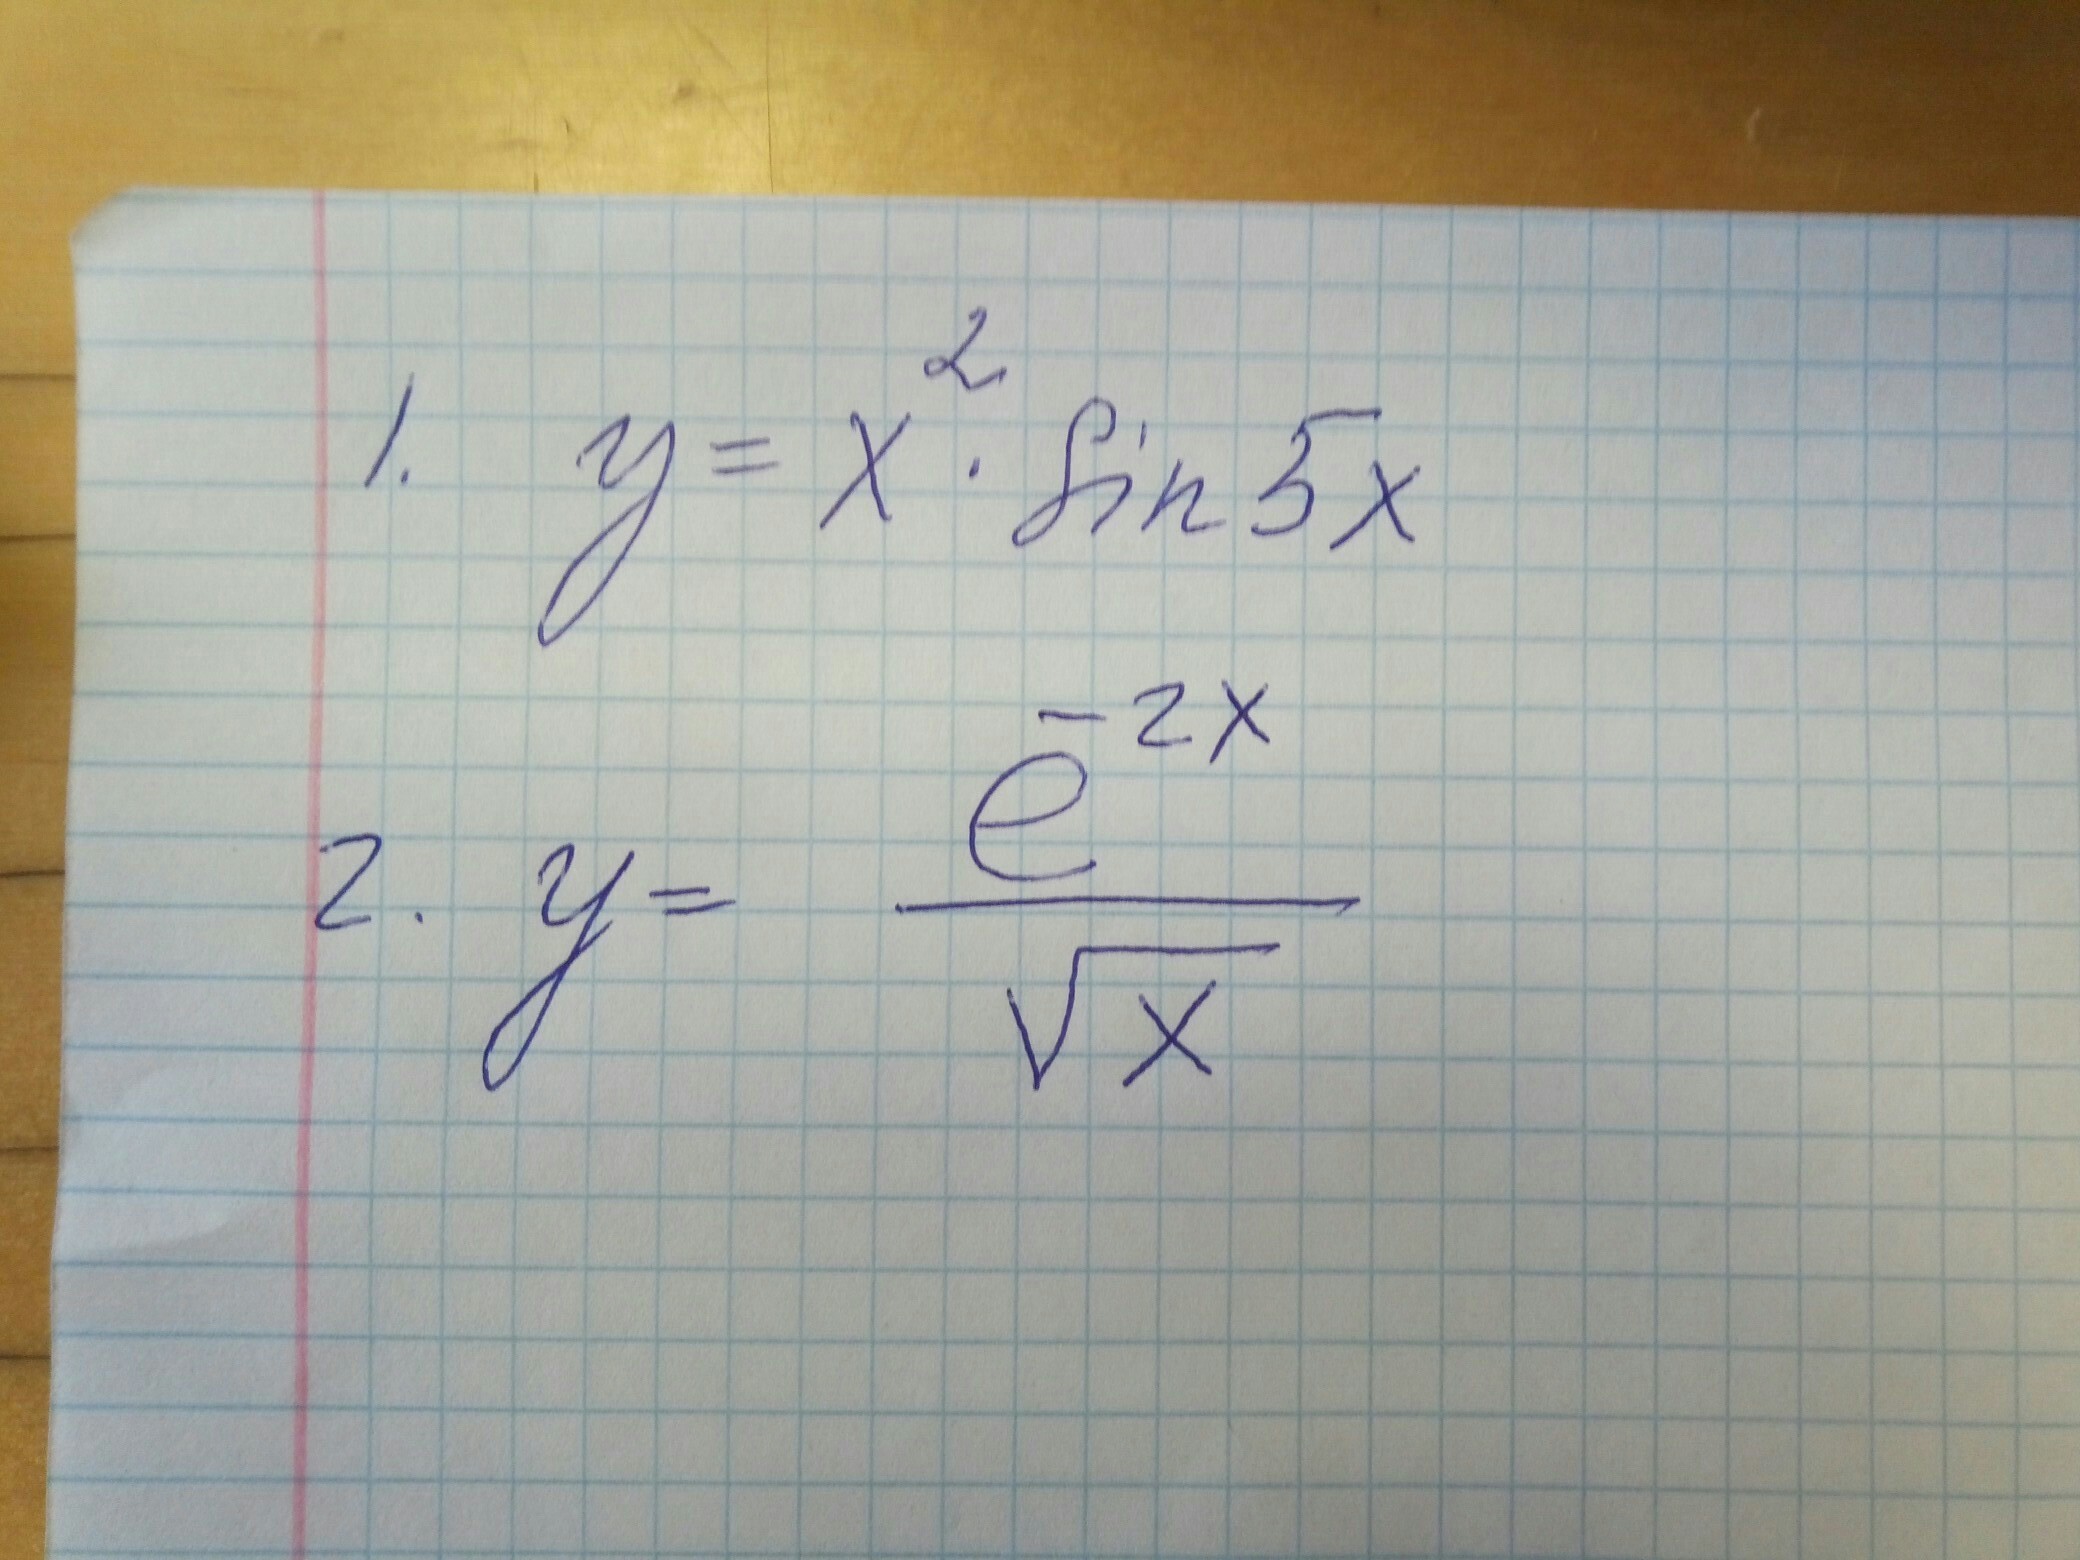 1. y = x² · sin 5x
2. y = e^(-2x) / √x